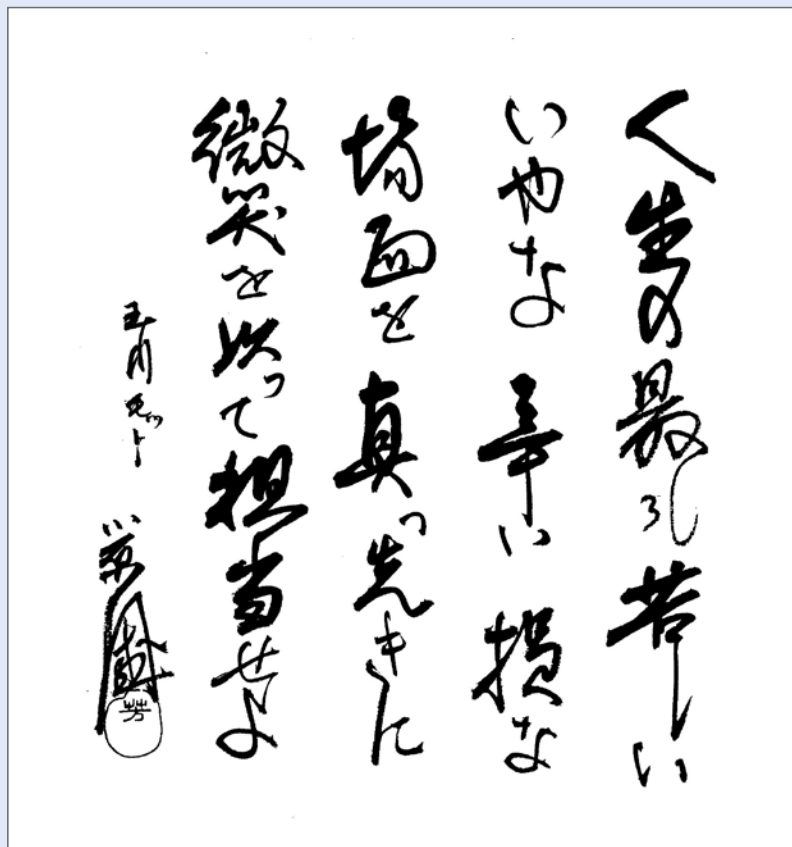 人生の最も苦しい
いやな 辛い 損な
場面を 真っ先きに
微笑を以って担当せよ
玉川
小原國芳